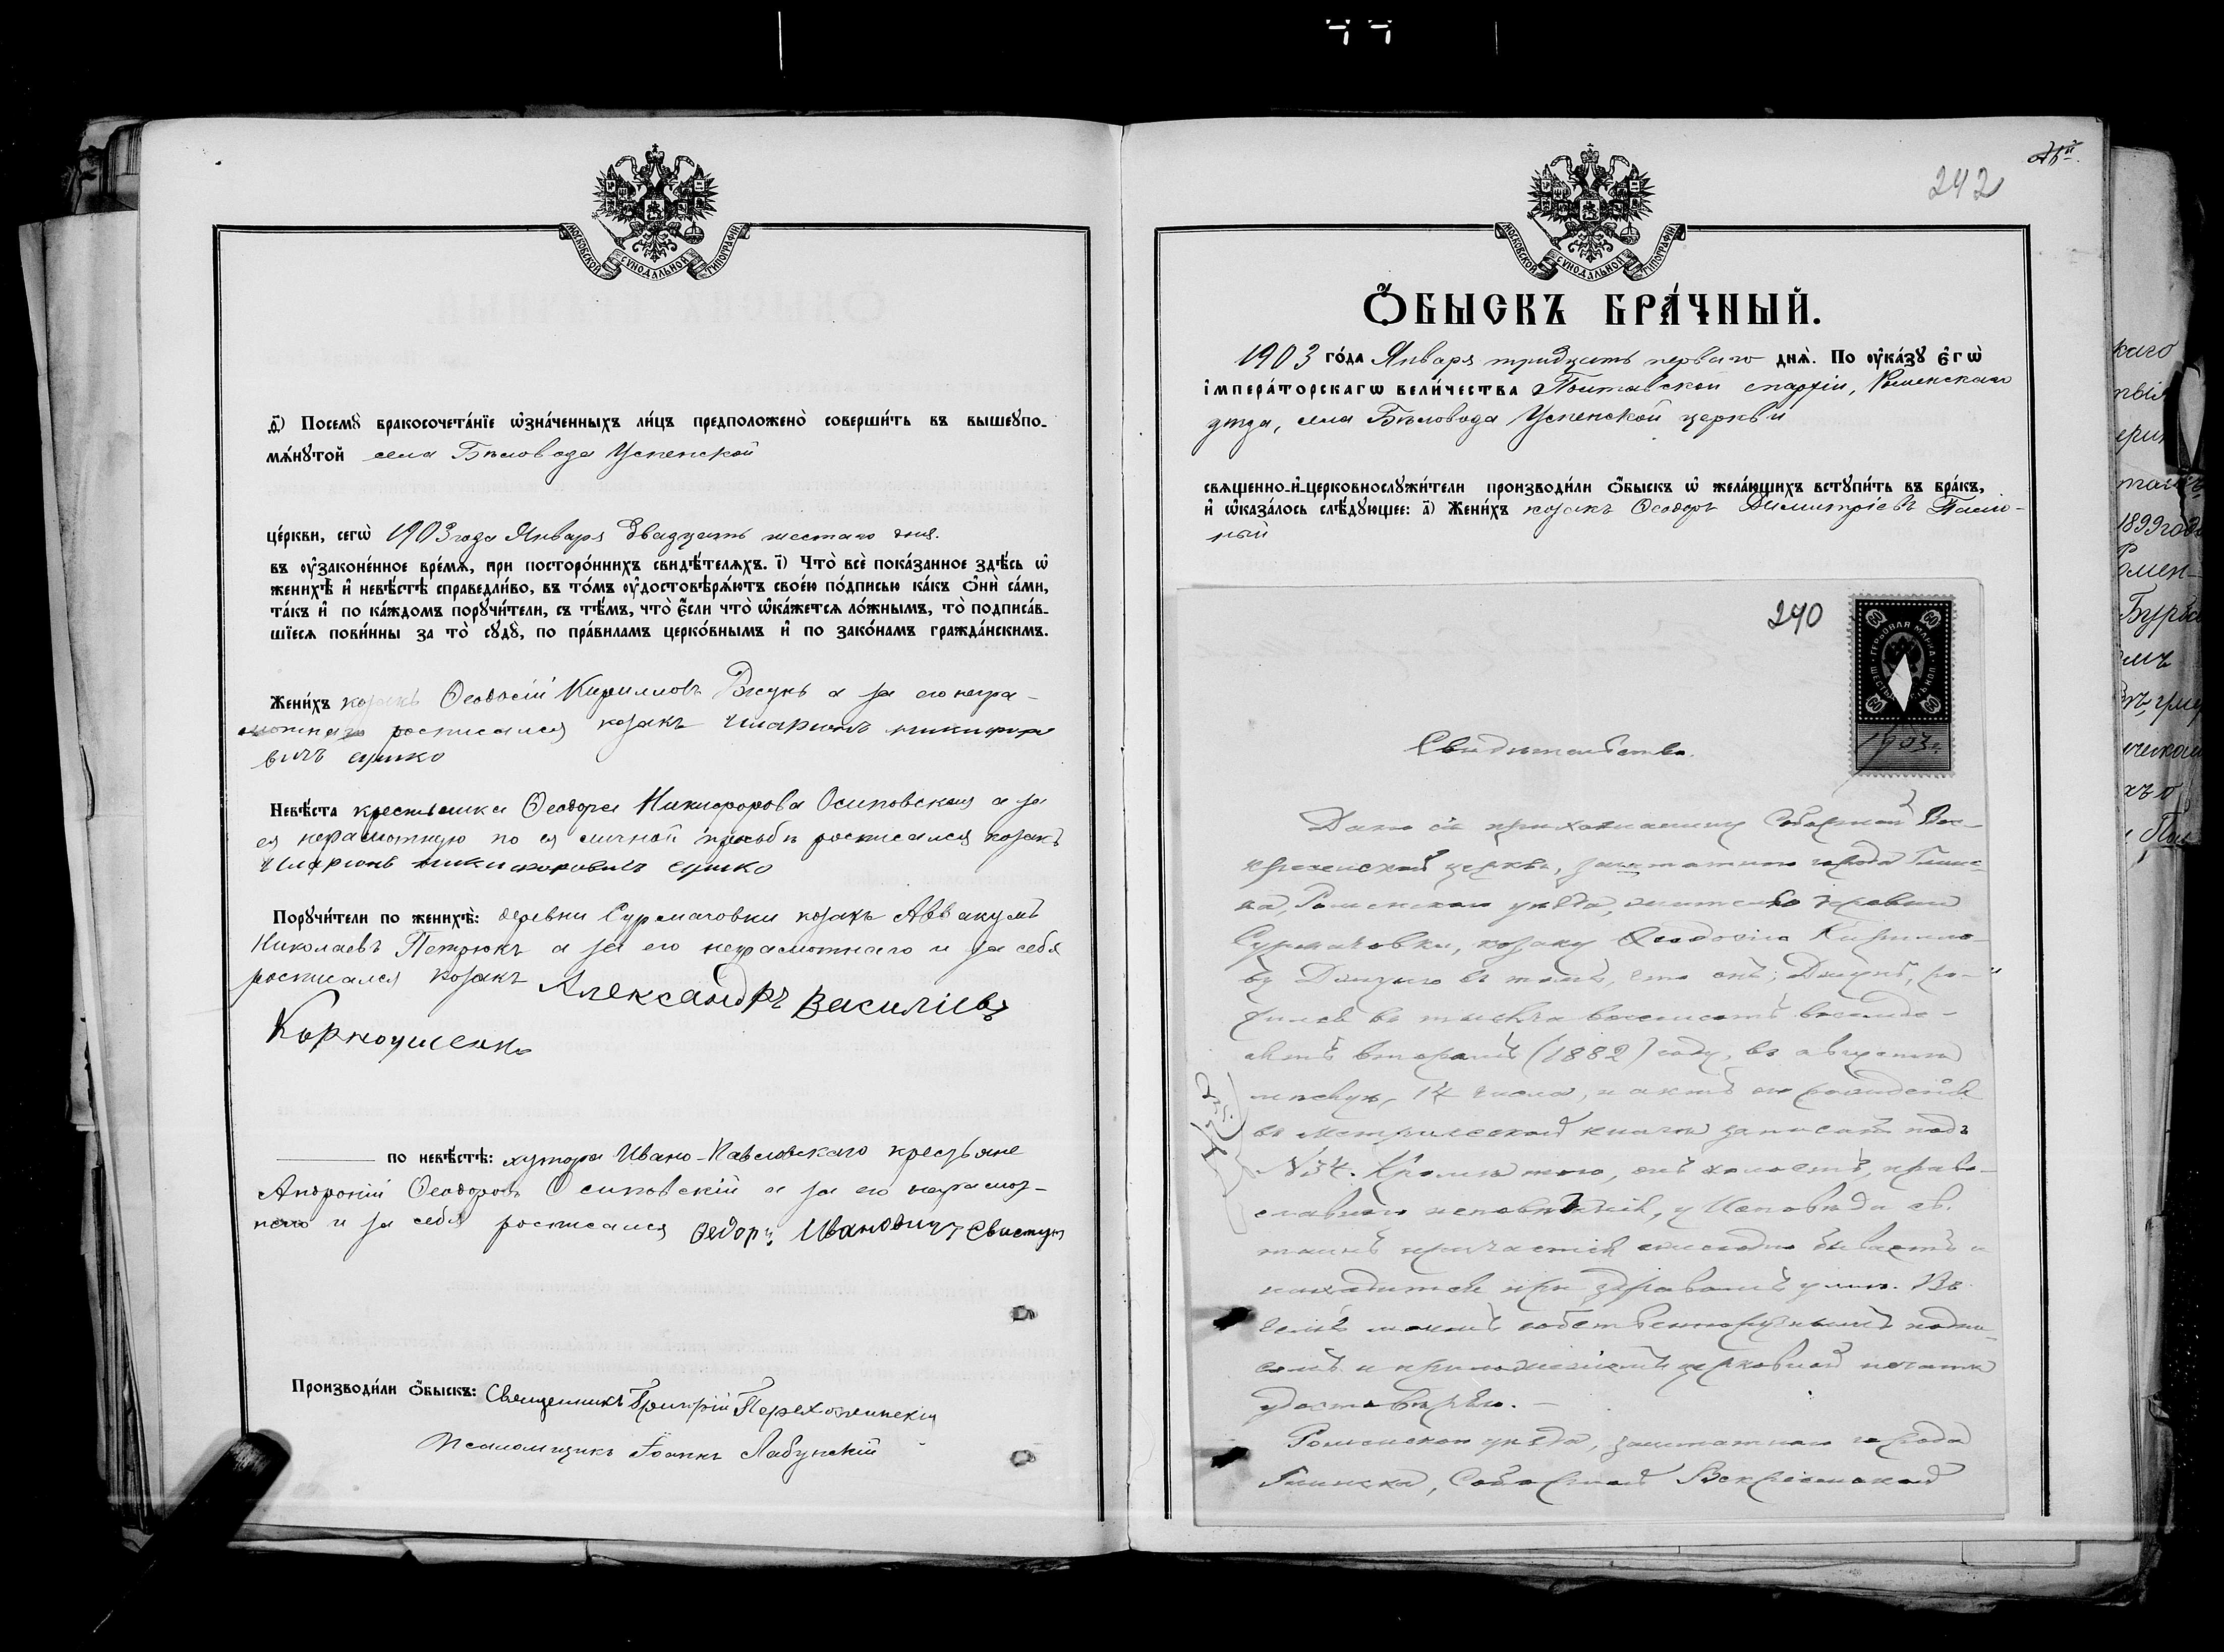 МОСКОВСКОЙ СѴНОДАЛЬНОЙ ТИПОГРАФІИ
д҃і) Посемꙋ̀ бракосочета́нїе ѡ҆зна́ченныхъ ли́цъ предположено̀ соверши́ть въ вышеꙋпо-
мѧ́нꙋтой села Бѣловода Успенской
це́ркви, сегѡ̀ 1903 года Января двадцать шестаго дня.
въ ᲂу҆законе́нное вре́мѧ, при посторо́ннихъ свидѣ́телѧхъ. і҃і) Что̀ всѐ пока́занное здѣ́сь ѡ҆
женихѣ̀ и҆ невѣ́стѣ справедли́во, въ то́мъ ᲂу҆достовѣрѧ́ютъ свое́ю по́дписью ка́къ ѻ҆нѝ са́ми,
та́къ и҆ по ка́ждомъ порꙋчи́тели, съ тѣ́мъ, что̀ є҆́сли что̀ ѡ҆ка́жетсѧ ло́жнымъ, то̀ подписа́в-
шїесѧ пови́нны за то̀ сꙋдꙋ̀, по пра́виламъ церко́внымъ и҆ по зако́намъ гражда́нскимъ.
Жени́хъ козакъ Ѳеодосій Кирилловъ а за его негра-
мотнаго росписался козакъ Иларионъ никифоро
вичъ
Невѣ́ста крестьянка Ѳеодора Никифорова Осиповская а за
ея неграмотную по ея личной прозьбѣ росписался козакъ
Иларионъ никифоровичъ
Порꙋчи́тели по женихѣ̀: деревни Сурмачовки козакъ Аввакумъ
Николаевъ Петрюкъ а за его неграмотнаго и за себя
росписался козакъ Александръ Василіевъ
Корноушенко
по невѣ́стѣ: хутора Ивано-Павловскаго крестьяне
Андроній Ѳеодоровъ Осиповскій а за его неграмот-
наго и за себя росписался Федоръ Ивановичъ Свистун
Производи́ли ѻ҆́быскъ: Священникъ Григорій
Псаломщикъ Іоаннъ Лабунскій
242
МОСКОВСКОЙ СѴНОДАЛЬНОЙ ТИПОГРАФІИ
Ѻ҆́БЫСКЪ БРА́ЧНЫЙ.
1903 го́да Января тридцать перваго днѧ̀. По ᲂу҆ка́зꙋ є҆гѡ̀
і҆мпера́торскагѡ вели́чества Полтавской епархіи, Роменскаго
уѣзда, села Бѣловода Успенской церкви
свѧщенно-и҆-церковнослꙋжи́тели производи́ли ѻ҆́быскъ ѡ҆ жела́ющихъ вступи́ть въ бра́къ,
и҆ ѡ҆каза́лось слѣ́дꙋющее: а҃) Жени́хъ козакъ Ѳеодоръ Димитріевъ
ный
240
ГЕРБОВАЯ МАРКА
60
1903 г.
Свидѣтельство.
Дано сіе прихожанину Соборной Вос-
кресенской церкви, заштатнаго города Глинс-
ка, Роменскаго уѣзда, жителю деревни
Сурмачовки, козаку Ѳеодосію Кирилло-
ву въ томъ, что онъ, ро-
дился въ тысяча восемсотъ восемде-
сятъ второмъ (1882) году, въ августѣ
мѣсяцѣ, 14 числа, и актъ о рожденіи
въ метрической книгѣ записанъ подъ
№ 54. Кромѣ того, онъ холостъ, право-
славнаго исповѣданія, у Исповѣди и св.
таинъ причастія ежегодно бываетъ и
находится при здравомъ умѣ. Въ
чемъ моимъ собственноручнымъ подпи-
сомъ и приложеніемъ церковной печати
удостовѣряю.
Роменскаго уѣзда, заштатнаго города
Глинска, Соборной Воскресенской
1899 года